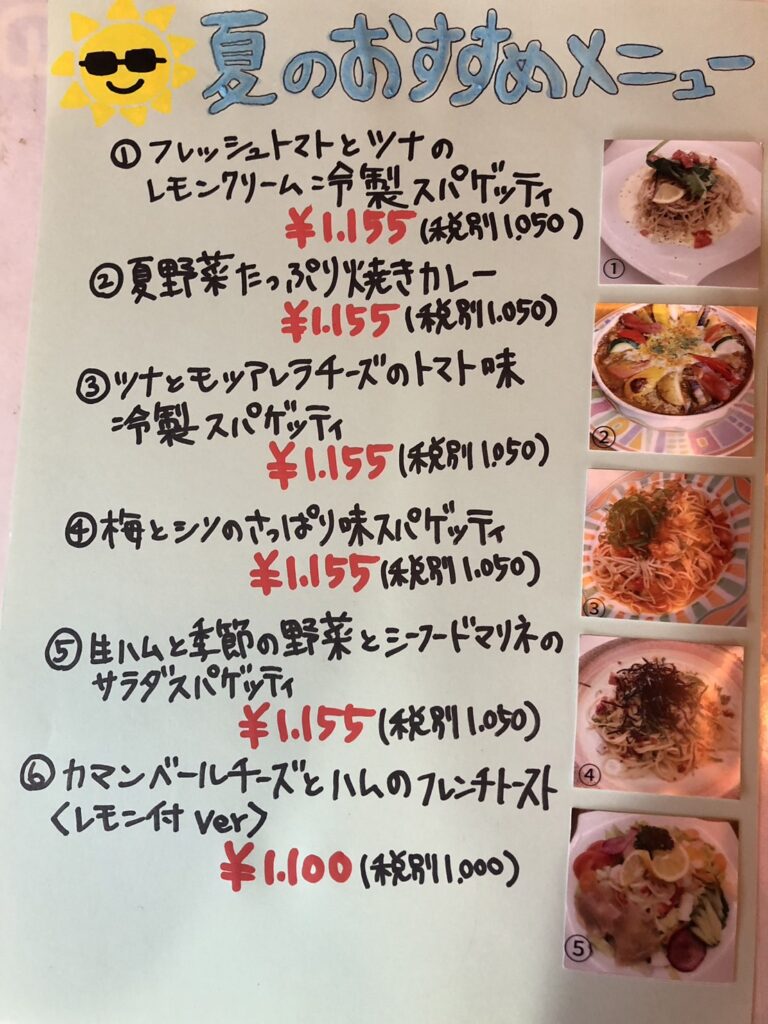 夏のおすすめメニュー
①フレッシュトマトとツナの
レモンクリーム冷製スパゲッティ
¥1.155(税別1.050)
②夏野菜たっぷり焼きカレー
¥1.155(税別1.050)
③ツナとモッツアレラチーズのトマト味
冷製スパゲッティ
¥1.155(税別1.050)
④梅とシソのさっぱり味スパゲッティ
¥1.155(税別1.050)
⑤生ハムと季節の野菜とシーフードマリネの
サラダスパゲッティ
¥1.155(税別1.050)
⑥カマンベールチーズとハムのフレンチトースト
〈レモン付ver〉
¥1.100(税別1.000)
①
②
③
④
⑤